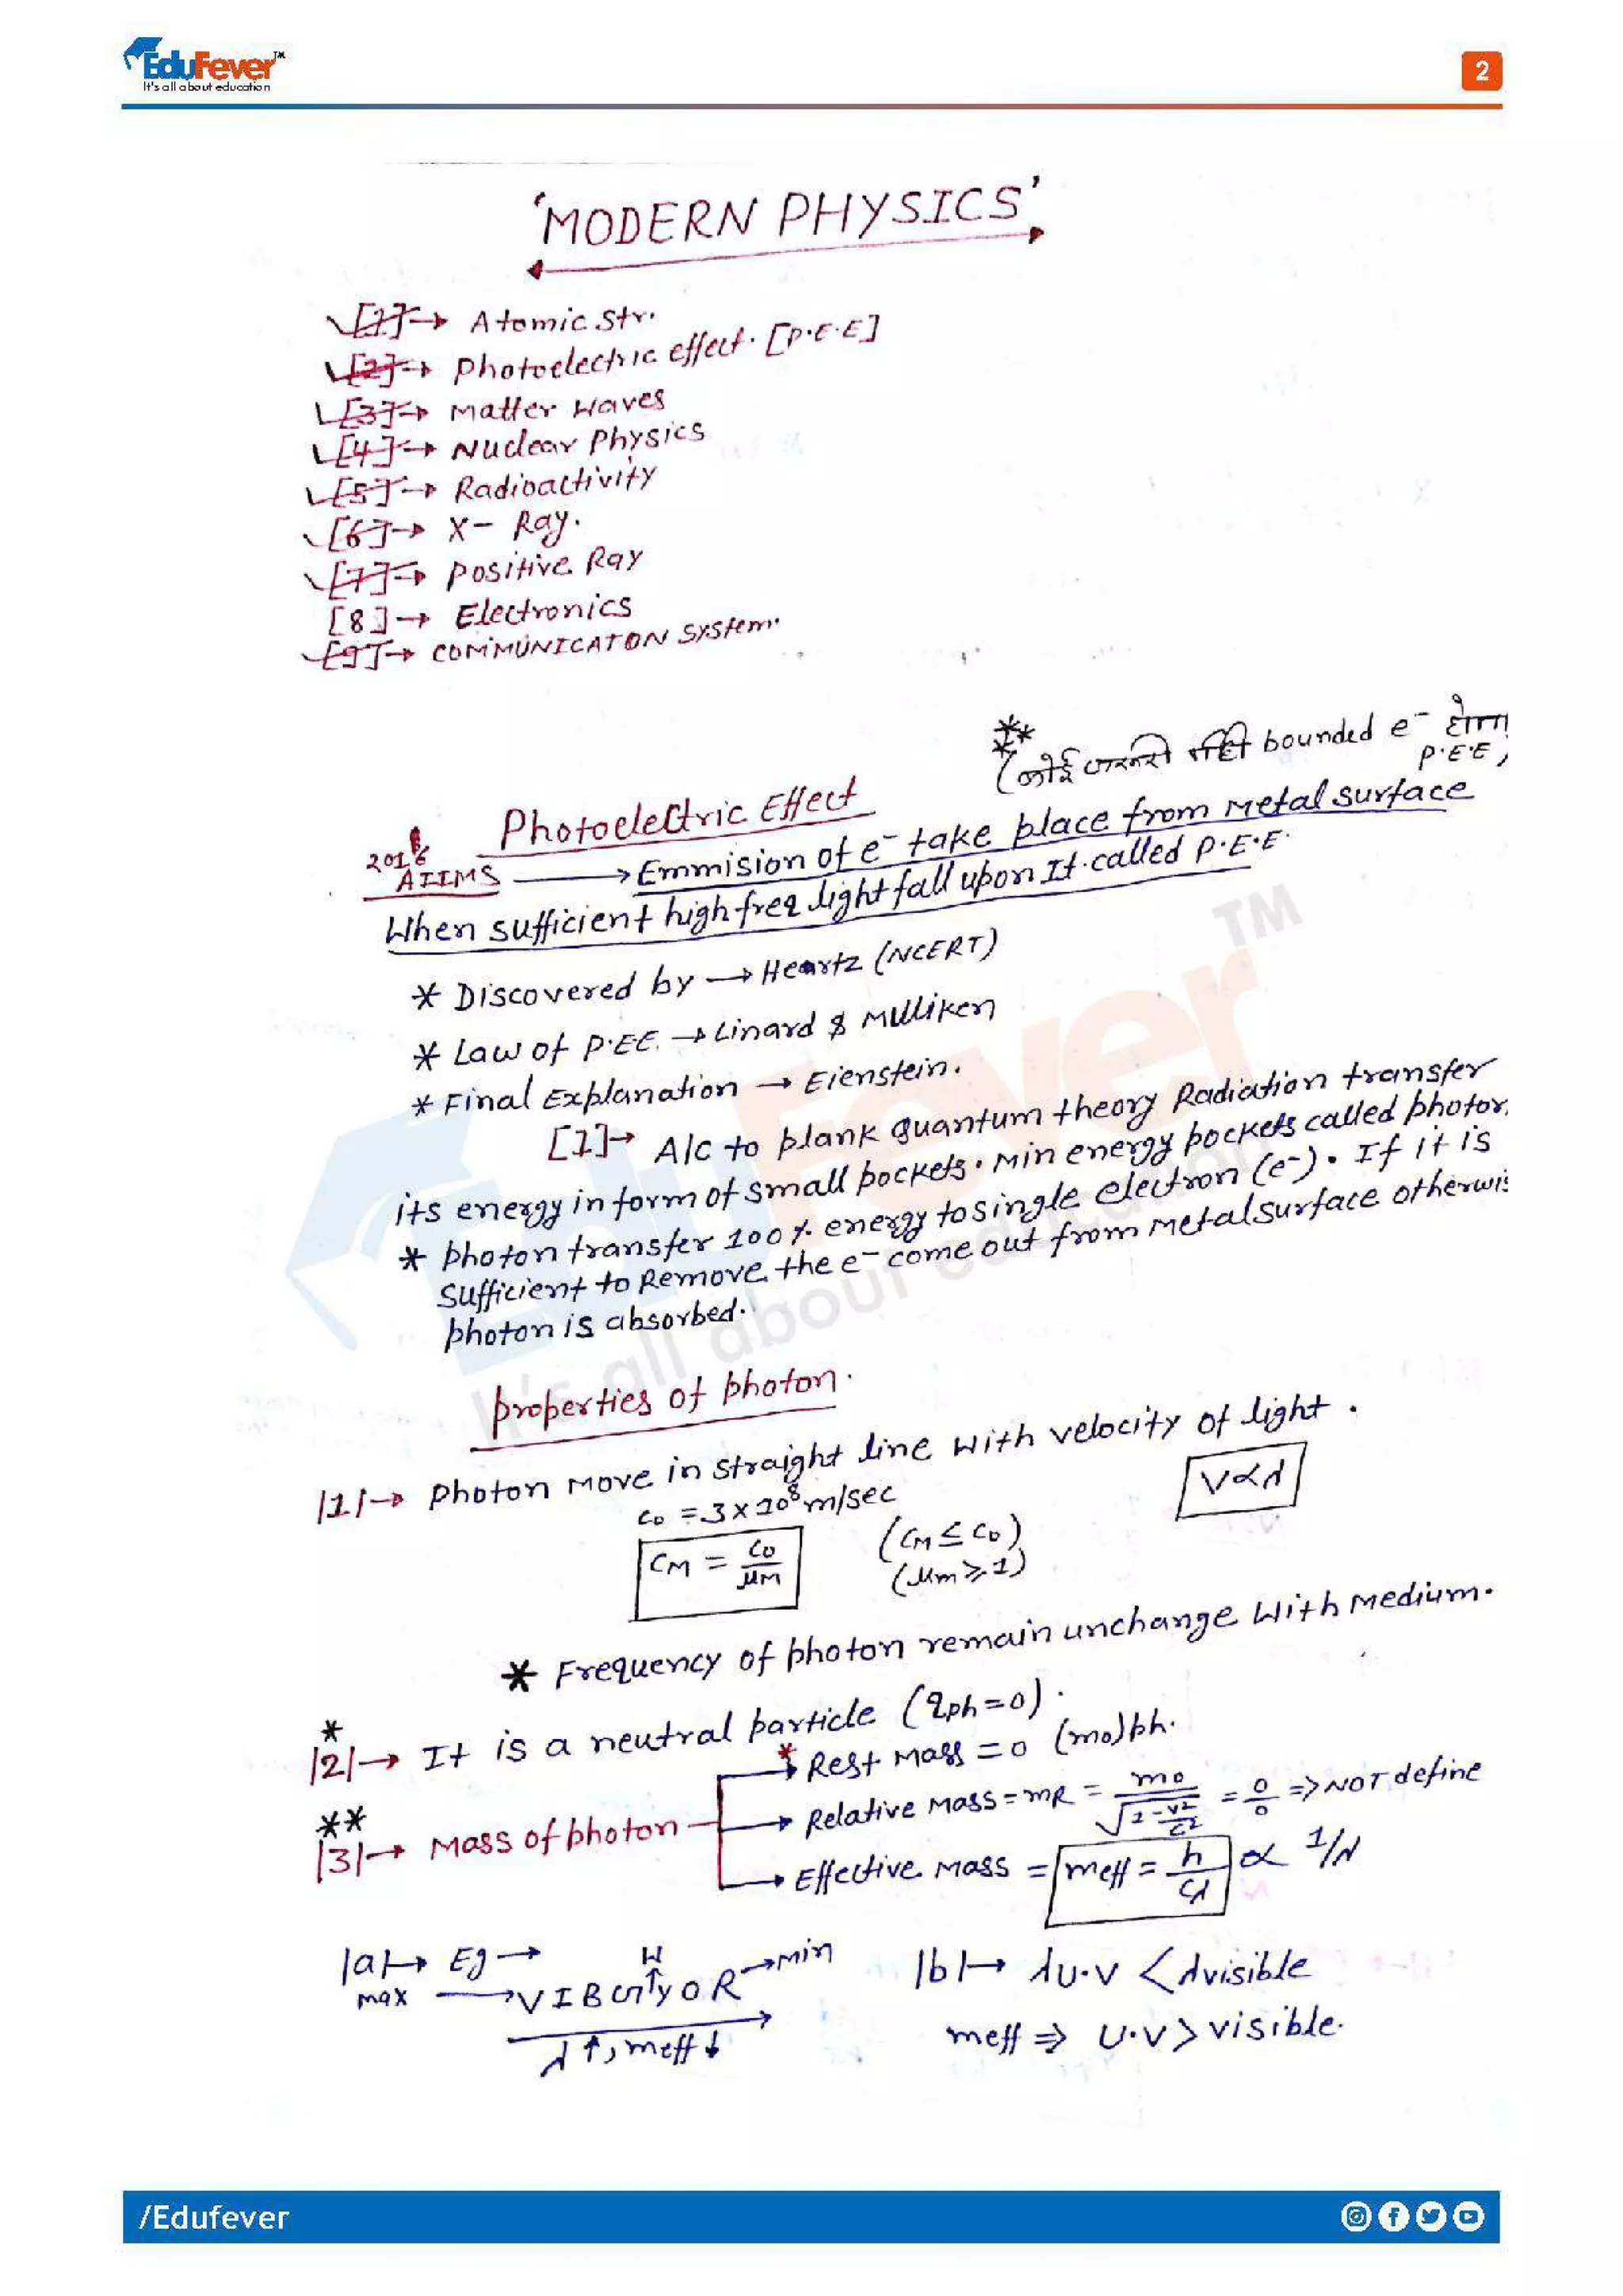 EduFever™
It's all about education
2
'MODERN PHYSICS'
[1]→ Atomic Str.
[2]→ Photoelectric effect. [P.E.E]
[3]→ Matter Waves
[4]→ Nuclear Physics
[5]→ Radioactivity
[6]→ X- Ray.
[7]→ Positive Ray
[8]→ Electronics
[9]→ COMMUNICATON System.
**
*
(कोई जरूरी नहीं bounded e⁻ होगा
P.E.E)
Photoelectric Effect
2016
AIIMS → Emmision of e⁻ take place from Metal surface
When sufficient high freq light fall upon It called P.E.E.
* Discovered by → Heartz (NCERT)
* Law of P.EE. → Linard & Mulliken
* Final Explanation → Eienstein.
[1]→ A/c to plank Quantum theory Radiation transfer
its energy in form of small pockets. Min energy pockets called photon
* photon transfer 100% energy to single electron (e⁻). If it is
Sufficient to Remove the e⁻ come out from Metal surface otherwis
photon is absorbed.
properties of photon.
|1|→ Photon Move in straight line With velocity of light.
c₀ = 3 x 10⁸ m/sec
V∝λ
C_M = C₀/μ_M
(C_M ≤ C₀)
(μ_m ≥ 1)
* Frequency of photon remain unchange With Medium.
*
|2|→ It is a neutral particle (q_ph = 0).
**
|3|→ Mass of photon
* Rest Mass = 0 (m₀)ph.
→ Relative Mass = m_R = m₀/√(1-v²/c²) = 0/0 => NOT define
→ Effective Mass = m_eff = h/cλ ∝ 1/λ
|a|→ Eg →
max → V I B G Y O R → min
W
λ↑, meff↓
|b|→ λu.v < λvisible
meff => U.V > visible.
/Edufever